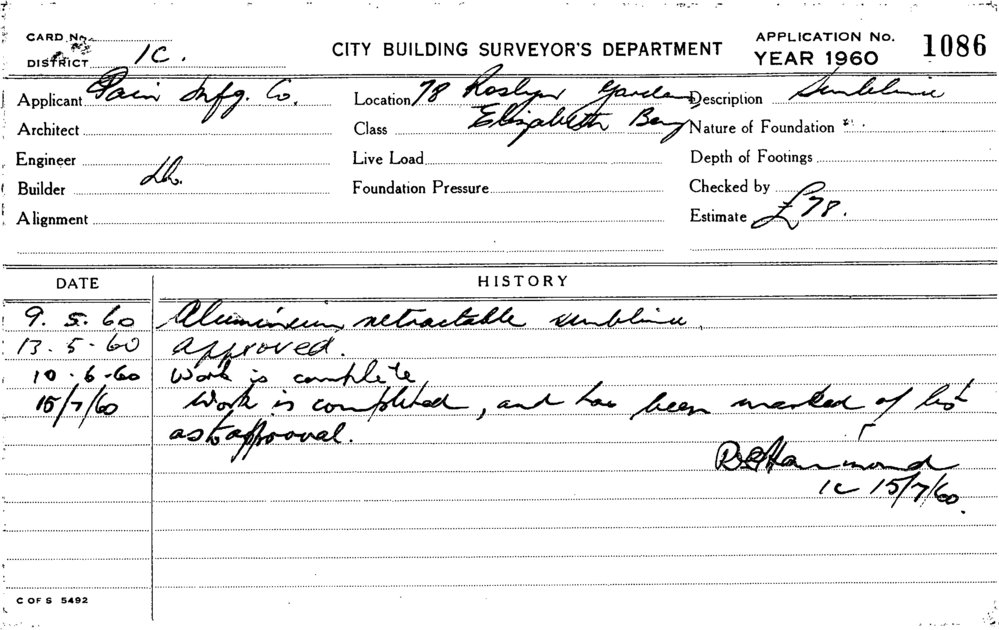 CARD No.
DISTRICT 1C.
CITY BUILDING SURVEYOR'S DEPARTMENT
APPLICATION No. 1086
YEAR 1960
Applicant Pain Mfg. Co.
Location 78 Roslyn Gardens
Description Sunblind
Architect
Class Elizabeth Bay
Nature of Foundation
Engineer
Live Load
Depth of Footings
Builder Do.
Foundation Pressure
Checked by
Alignment
Estimate £78.
DATE HISTORY
9. 5. 60 Aluminium retractable sunblind.
13. 5. 60 approved.
10. 6. 60 Work is complete
15/7/60 Work is completed, and has been marked of list
as to approval.
R Hammond
1C 15/7/60.
C OF S 5492